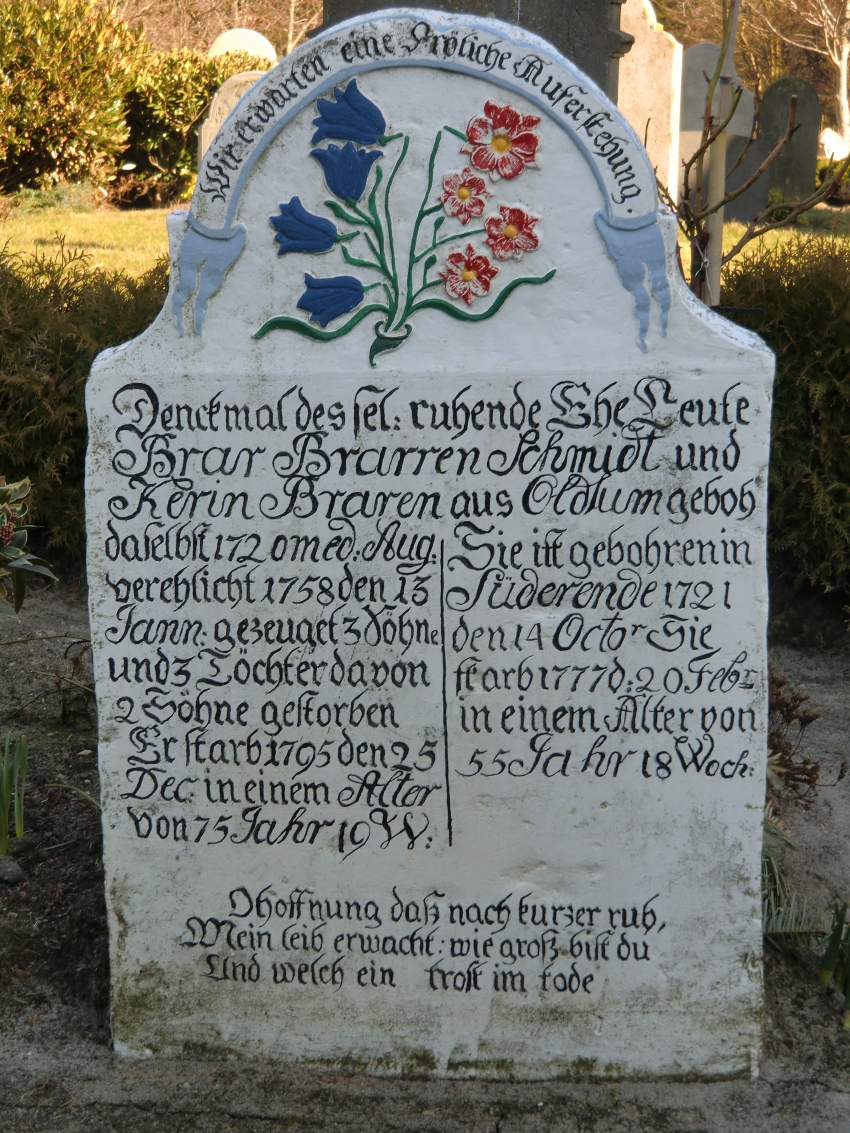 Wir erwarten eine Fröliche Auferstehung.
Denckmal des sel: ruhende Ehe Leute
Brar Braren Schmidt und
Kerin Braren aus Oldsum geboh
daselbst 1720 med: Aug.
verehlicht 1758 den 13
Jann: gezeuget 3 Söhne
und 3 Töchter davon
2 Söhne gestorben
Er starb 1795 den 25
Dec: in einem Alter
von 75 Jahr 19 W:
Sie ist gebohren in
Süderende 1721
den 14 Octor Sie
starb 1777 d: 20 Febr
in einem Alter von
55 Jahr 18 Woch:
O hoffnung daß nach kurzer ruh,
Mein leib erwacht: wie groß bist du
Und welch ein trost im tode